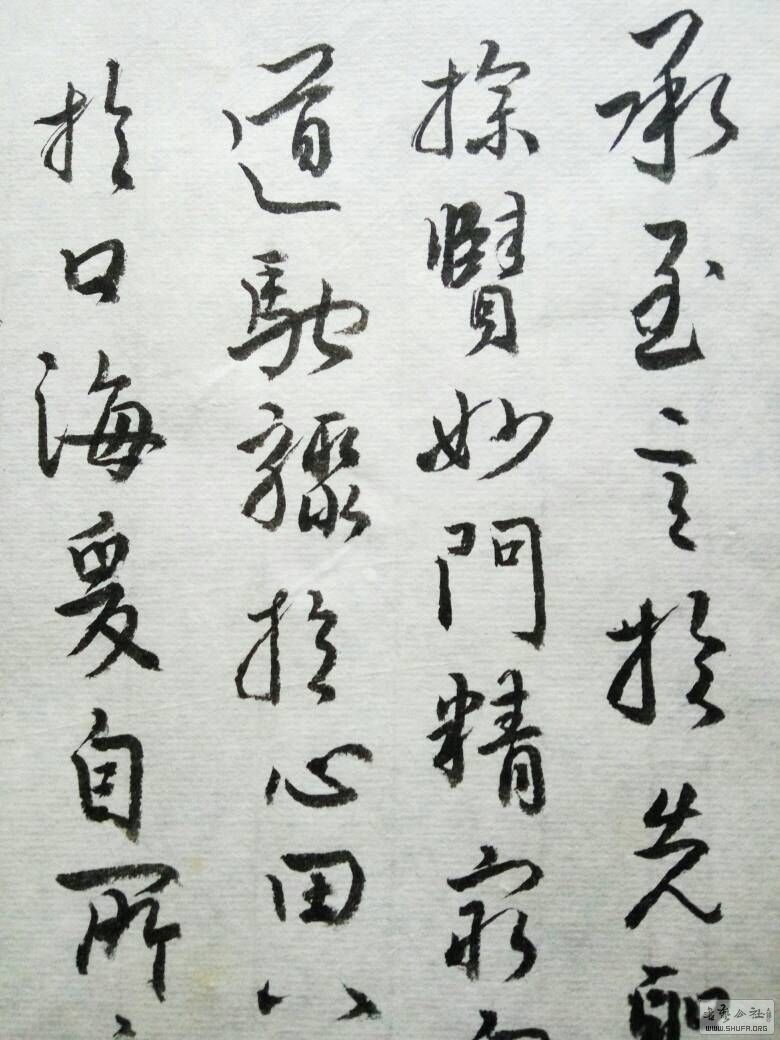 承至言於先聖
探賾妙門精窮
道馳驟於心田八
於口海爰自所
書藝公社
WWW.SHUFA.ORG